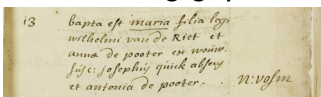 13 bapta est maria filia legi
wilhelmi van de Riet et
annæ de pooter et wouw.
susc: Josephus quick absens
et antonia de pooter.